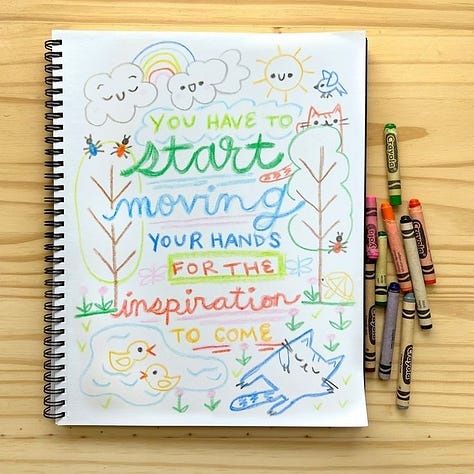 YOU HAVE TO
start
moving
YOUR HANDS
FOR THE
inspiration
TO COME
Crayola
Crayola
Crayola
Crayola